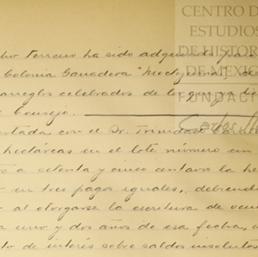 CENTRO DE
ESTUDIOS
DE HISTORIA
DE MÉXICO
FUNDACI
Carlos
terreno ha sido adquirido para
Colonia Ganadera
arreglos celebrados de los que ya
Consejo.
con el Sr. Trinidad
hectáreas en el lote número un
a setenta y cinco centavos la he
en tres pagos iguales, debiendo
al otorgarse la escritura de ven
a uno y dos años de esa fecha, c
to de interés sobre saldos insolutos